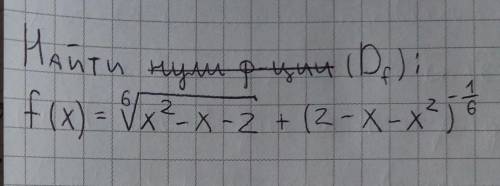 Найти нули ф-ции (D_f):
f(x) = ⁶√(x² - x - 2) + (2 - x - x²)^(-1/6)